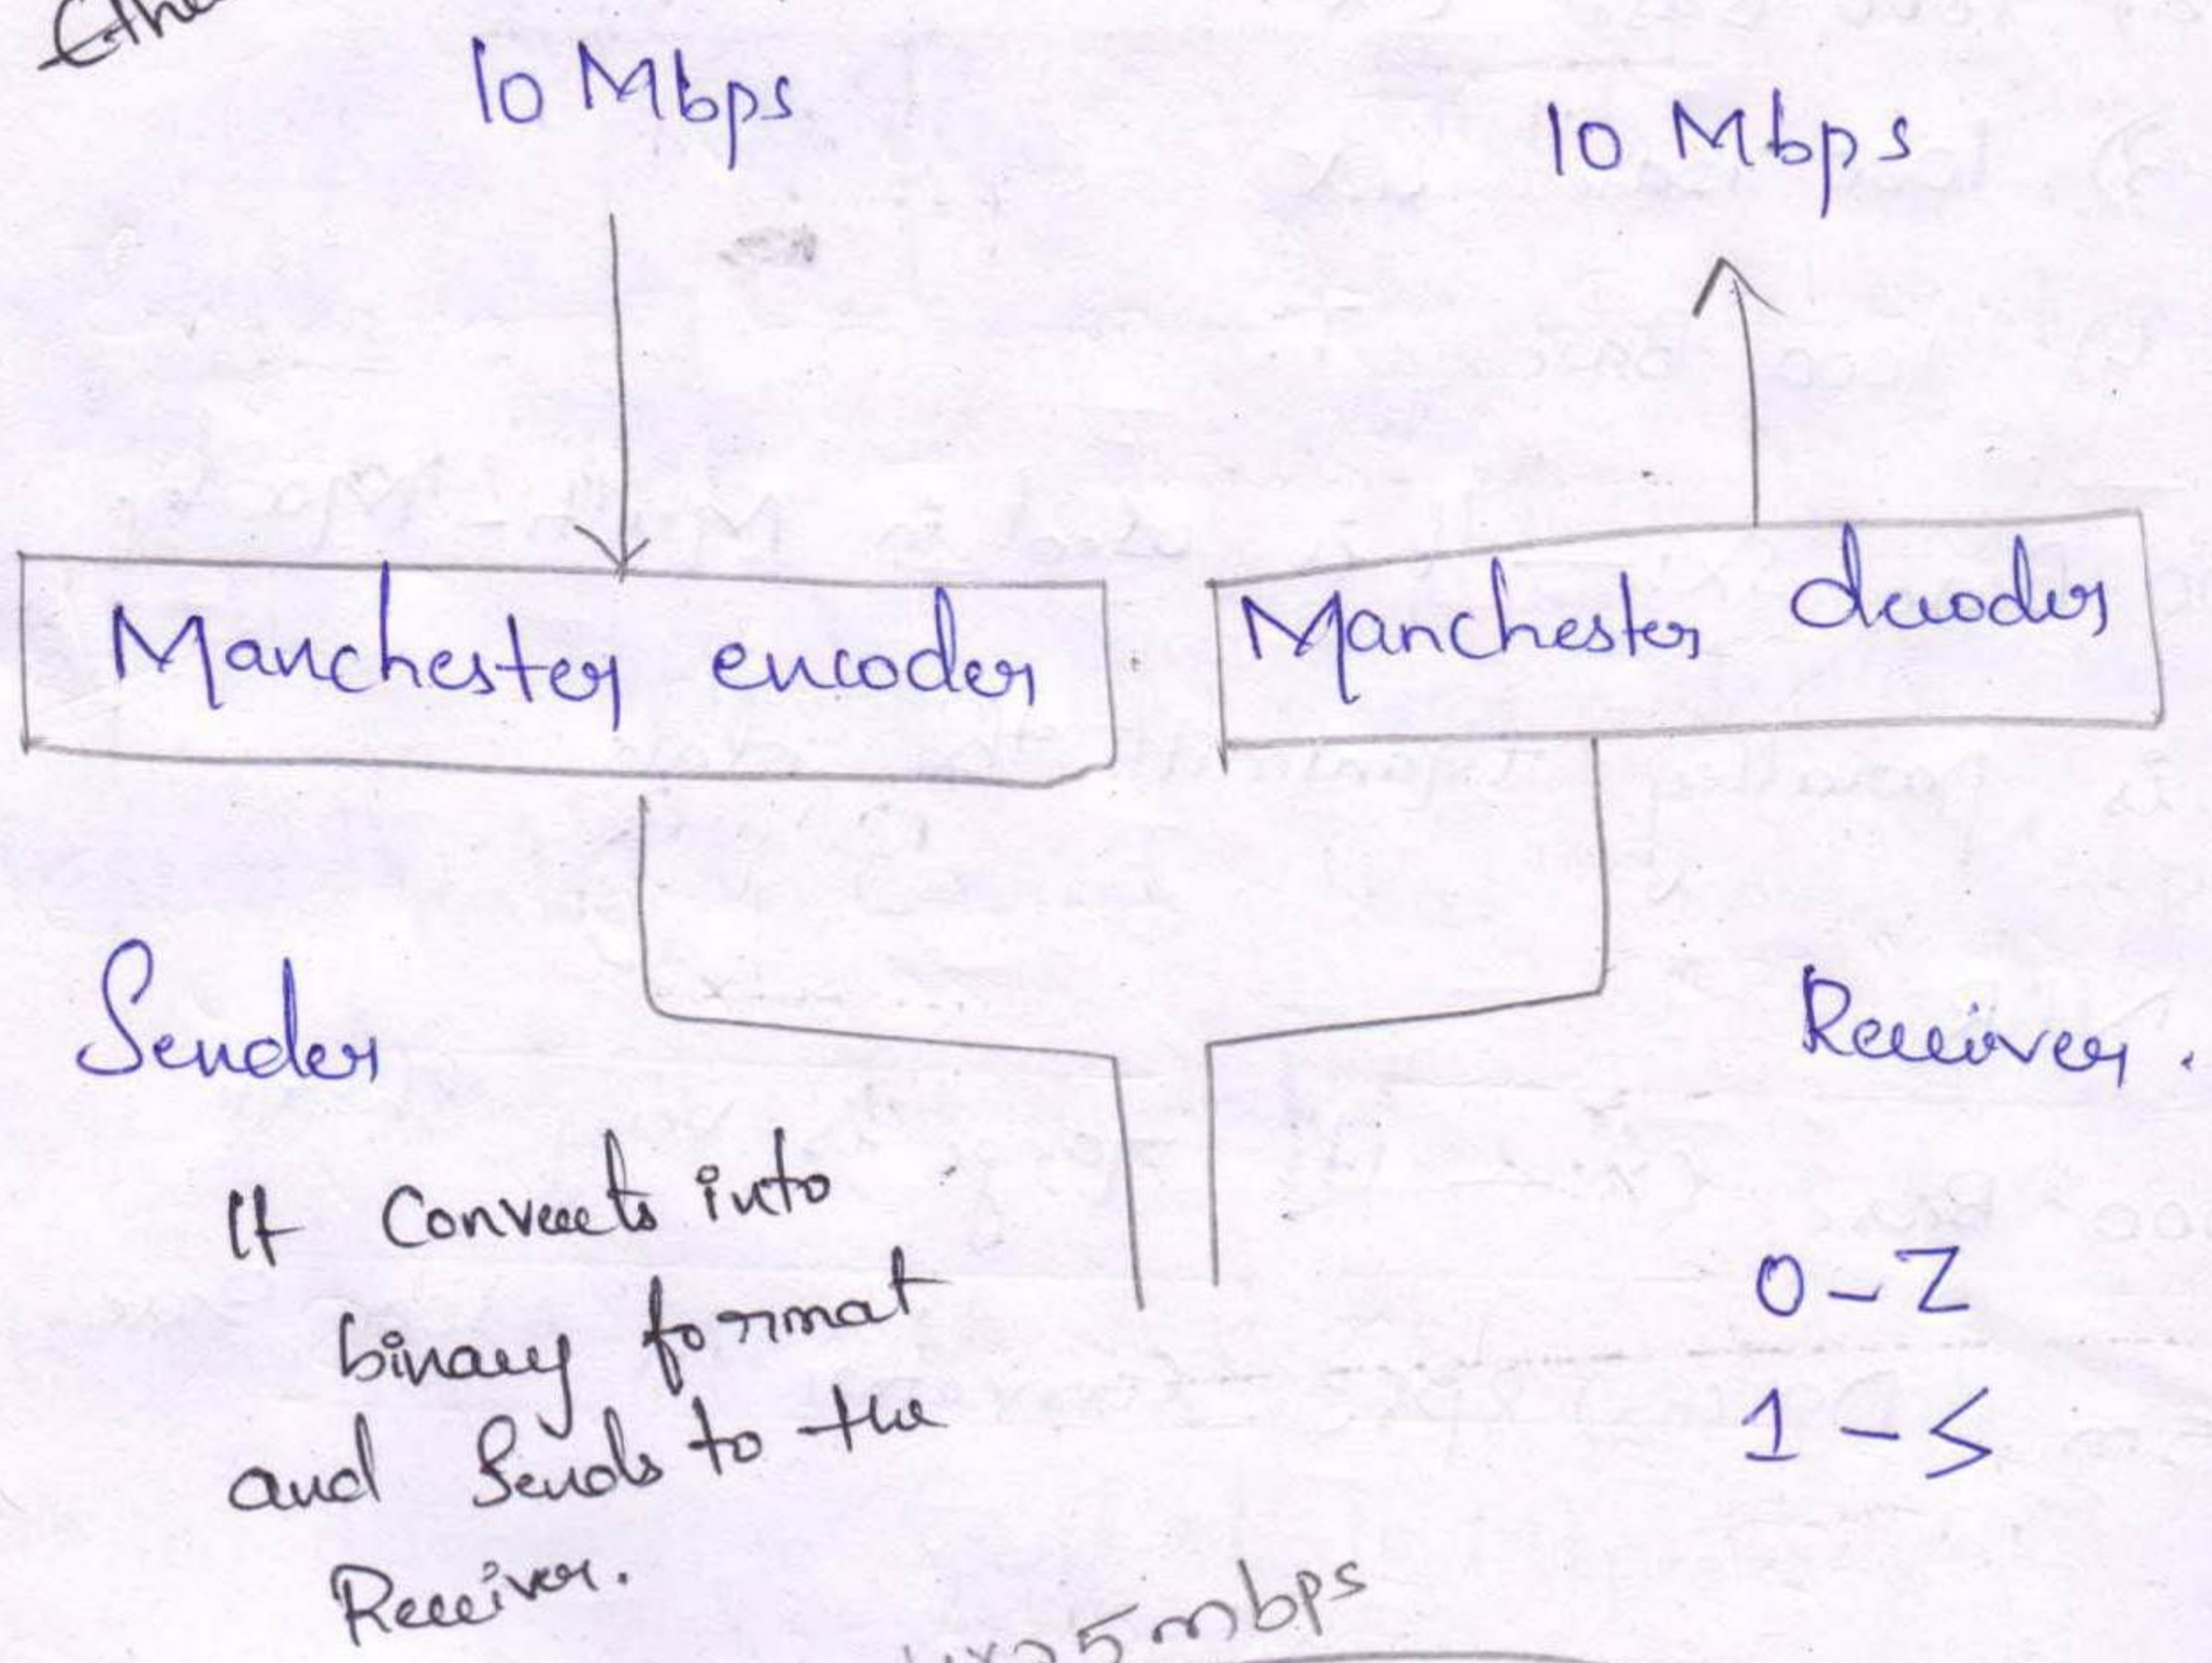 10 Mbps
10 Mbps
Manchester encoder
Manchester decoder
Sender
Receiver.
It Converts into
binary format
and Sends to the
Receiver.
0 - Z
1 - S
4x25mbps